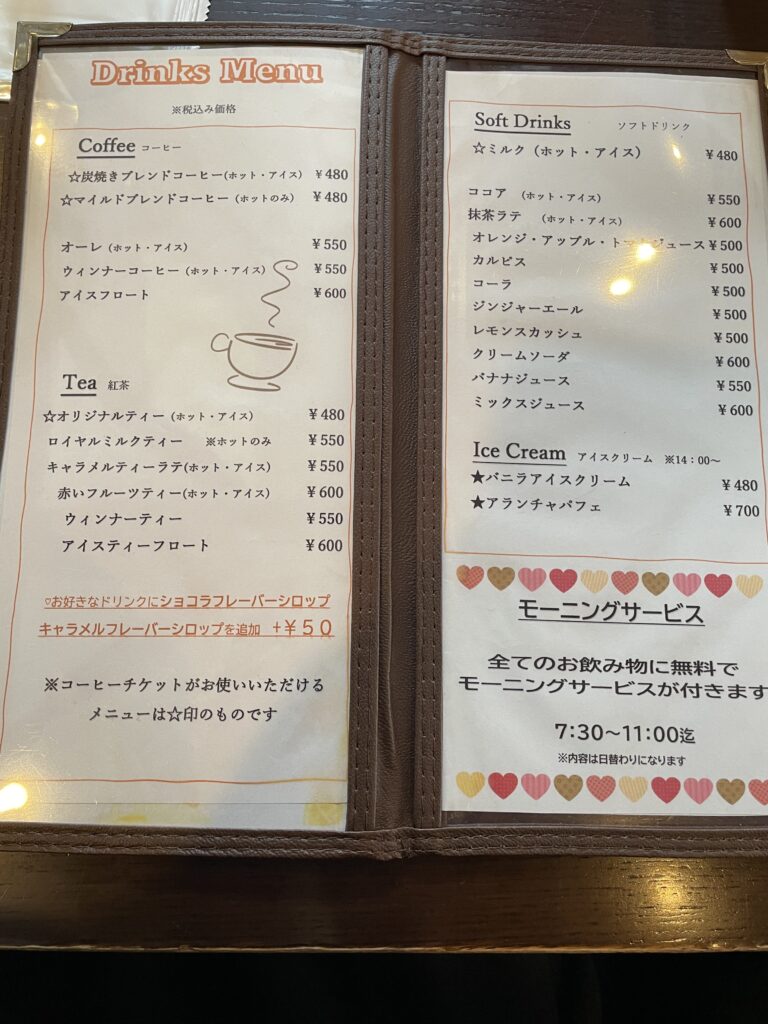 Drinks Menu
※税込み価格
Coffee コーヒー
☆炭焼きブレンドコーヒー(ホット・アイス) ¥480
☆マイルドブレンドコーヒー (ホットのみ) ¥480
オーレ (ホット・アイス) ¥550
ウィンナーコーヒー (ホット・アイス) ¥550
アイスフロート ¥600
Tea 紅茶
☆オリジナルティー (ホット・アイス) ¥480
ロイヤルミルクティー ※ホットのみ ¥550
キャラメルティーラテ(ホット・アイス) ¥550
赤いフルーツティー(ホット・アイス) ¥600
ウィンナーティー ¥550
アイスティーフロート ¥600
♡お好きなドリンクにショコラフレーバーシロップ
キャラメルフレーバーシロップを追加 +¥50
※コーヒーチケットがお使いいただける
メニューは☆印のものです
Soft Drinks ソフトドリンク
☆ミルク (ホット・アイス) ¥480
ココア (ホット・アイス) ¥550
抹茶ラテ (ホット・アイス) ¥600
オレンジ・アップル・トマトジュース ¥500
カルピス ¥500
コーラ ¥500
ジンジャーエール ¥500
レモンスカッシュ ¥500
クリームソーダ ¥600
バナナジュース ¥550
ミックスジュース ¥600
Ice Cream アイスクリーム ※14:00〜
★バニラアイスクリーム ¥480
★アランチャパフェ ¥700
モーニングサービス
全てのお飲み物に無料で
モーニングサービスが付きます
7:30〜11:00迄
※内容は日替わりになります